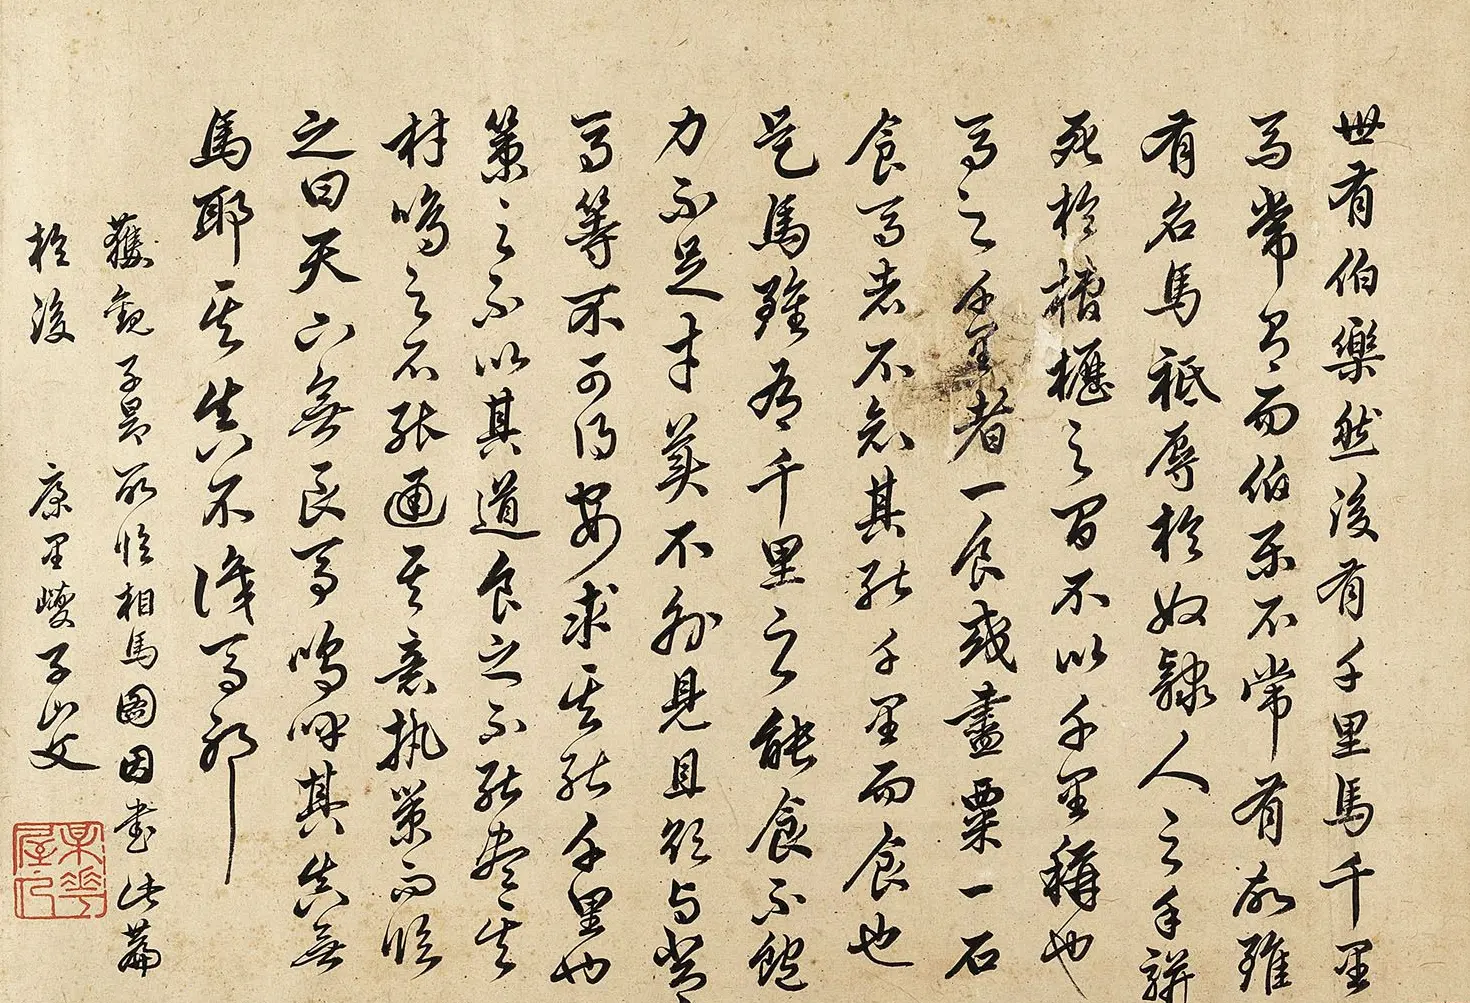 世有伯樂然後有千里馬千里
馬常有而伯樂不常有故雖
有名馬祗辱於奴隸人之手駢
死於槽櫪之間不以千里稱也
馬之千里者一食或盡粟一石
食馬者不知其能千里而食也
是馬雖有千里之能食不飽
力不足才美不外見且欲與常
馬等不可得安求其能千里也
策之不以其道食之不能盡其
材鳴之不能通其意執策而臨
之曰天下無良馬嗚呼其真無
馬耶其真不識馬耶
獲觀子昂所臨相馬圖因書此篇
於後 康里巙子山父